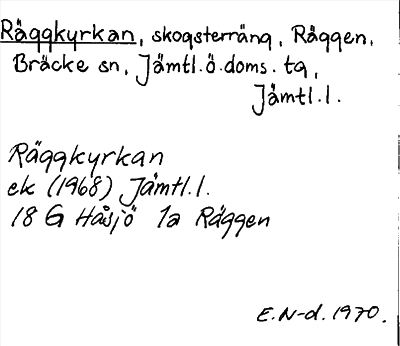 Räggkyrkan, skogsterräng, Räggen,
Bräcke sn, Jämtl.ö.doms.tg,
Jämtl.l.
Räggkyrkan
ek (1968) Jämtl.l.
18 G Håsjö 1a Räggen
E.N-d. 1970.